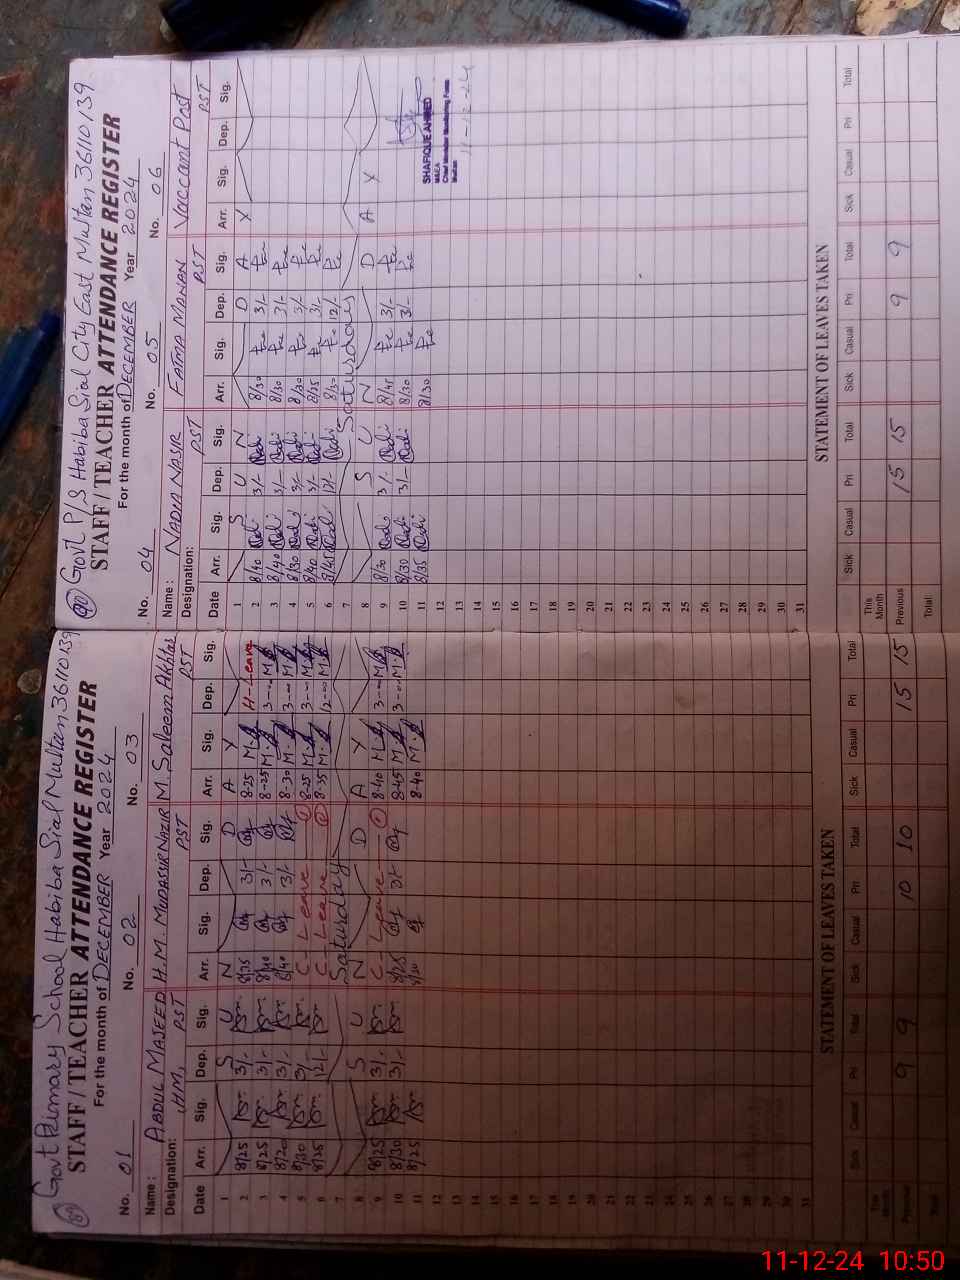 89
Govt Primary School Habiba Sial Multan 36110139
STAFF / TEACHER ATTENDANCE REGISTER
For the month of DECEMBER Year 2024
No. 01 No. 02 No. 03
Name: ABDUL MAJEED H.M. MUDASIR NAZIR M. Saleem Akhtar
Designation: HM, PST PST PST
Date Arr. Sig. Dep. Sig. Arr. Sig. Dep. Sig. Arr. Sig. Dep. Sig.
1 S U N D A Y
2 8/25 3/- 8/35 3/- 8-25 H-Leave
3 8/25 3/- 8/40 3/- 8-25 3-00
4 8/20 3/- 8/40 3/- 8-30 3-00
5 8/30 3/- C-Leave 1 8-25 3-00
6 8/25 12/- C-Leave 2 8-35 12-00
7 Saturday
8 S U N D A Y
9 8/25 3/- C-Leave 1 8-40 3-00
10 8/30 3/- 8/25 3/- 8-45 3-00
11 8/25 8/30 8-40
12
13
14
15
16
17
18
19
20
21
22
23
24
25
26
27
28
29
30
31
STATEMENT OF LEAVES TAKEN STATEMENT OF LEAVES TAKEN
Sick Casual Pri Total Sick Casual Pri Total Sick Casual Pri Total
This Month
Previous 9 9 10 10 15 15
Total
90
Govt P/S Habiba Sial City East Multan 36110139
STAFF / TEACHER ATTENDANCE REGISTER
For the month of DECEMBER Year 2024
No. 04 No. 05 No. 06
Name: NADIA NASIR FATMA MANAN Vaccant Post
Designation: PST PST PST
Date Arr. Sig. Dep. Sig. Arr. Sig. Dep. Sig. Arr. Sig. Dep. Sig.
1 S U N D A Y
2 8/40 3/- 8/30 3/-
3 8/40 3/- 8/30 3/-
4 8/30 3/- 8/30 3/-
5 8/40 3/- 8/25 3/-
6 8/45 12/- 8/30 12/-
7 Saturday
8 S U N D A Y
9 8/30 3/- 8/25 3/-
10 8/30 3/- 8/30 3/-
11 8/35 8/30
SHAFIQUE AHMED
MAEA
Chief Minister Monitoring Force
Multan
11-12-24
12
13
14
15
16
17
18
19
20
21
22
23
24
25
26
27
28
29
30
31
STATEMENT OF LEAVES TAKEN
Sick Casual Pri Total Sick Casual Pri Total Sick Casual Pri Total
This Month
Previous 15 15 9 9
Total
11-12-24 10:50